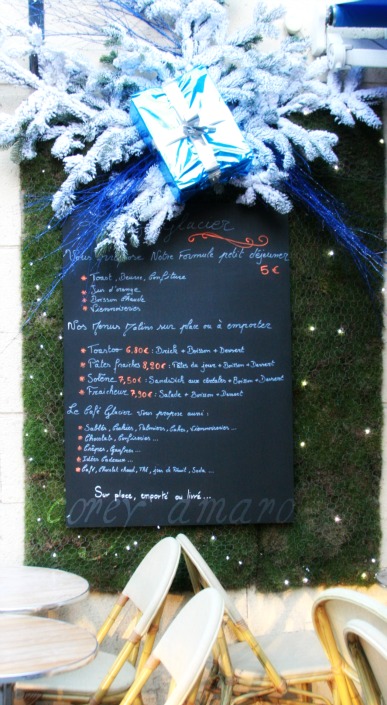 Glacier
Vous propose Notre Formule petit déjeuner
5 €
Toast, Beurre, Confiture
Jus d'orange
Boisson chaude
Viennoiserie
Nos Menus Malins sur place ou à emporter
Toastoo 6,80€ : Brick + Boisson + Dessert
Pâtes fraiches 8,20€ : Pâtes du jour + Boisson + Dessert
Solène 7,50€ : Sandwich aux céréales + Boisson + Dessert
Fraicheur 7,90€ : Salade + Boisson + Dessert
Le Café Glacier vous propose aussi :
Sablés, Cookies, Palmiers, Cakes, Viennoiseries...
Chocolats, Confiseries...
Crêpes, Gaufres...
Idées Cadeaux...
Café, Chocolat chaud, Thé, jus de Fruit, Soda...
Sur place, emporté ou livré...
corey amaro